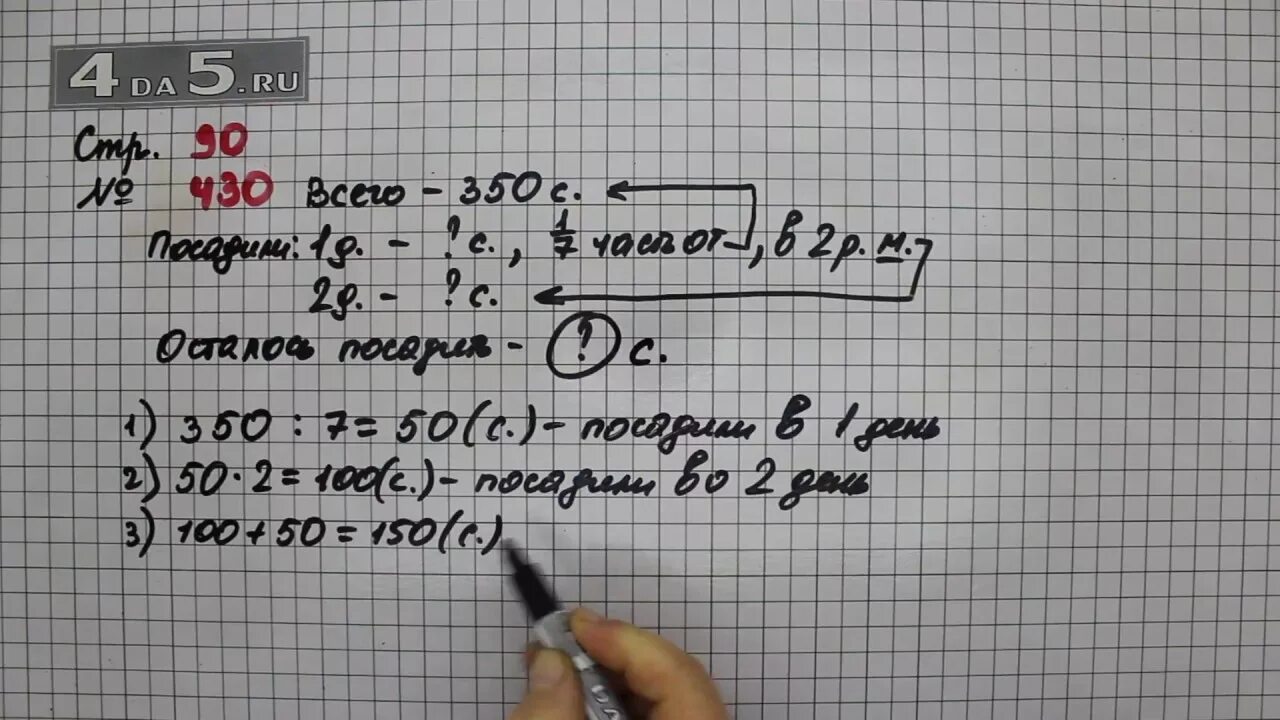 4DA5.RU
Стр. 90
№ 430 Всего - 350 с.
Посадили: 1д. - ? с., 1/7 часть от, в 2 р. м.
2д. - ? с.
Осталось посадить - ? с.
1) 350 : 7 = 50 (с.) - посадили в 1 день
2) 50 · 2 = 100 (с.) - посадили во 2 день
3) 100 + 50 = 150 (с.)